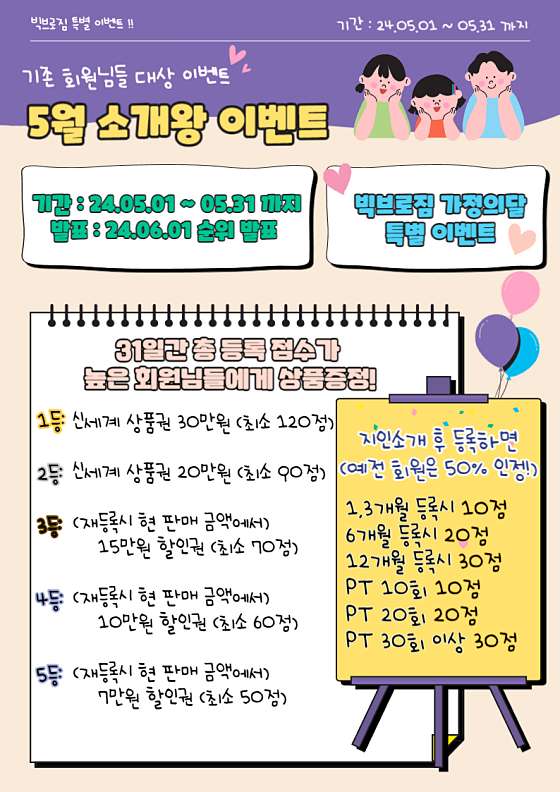 빅브로짐 특별 이벤트 !!
기간 : 24.05.01 ~ 05.31 까지
기존 회원님들 대상 이벤트
5월 소개왕 이벤트
기간 : 24.05.01 ~ 05.31 까지
발표 : 24.06.01 순위 발표
빅브로짐 가정의달
특별 이벤트
31일간 총 등록 점수가
높은 회원님들에게 상품증정!
1등: 신세계 상품권 30만원 (최소 120점)
2등: 신세계 상품권 20만원 (최소 90점)
3등: (재등록시 현 판매 금액에서)
15만원 할인권 (최소 70점)
4등: (재등록시 현 판매 금액에서)
10만원 할인권 (최소 60점)
5등: (재등록시 현 판매 금액에서)
7만원 할인권 (최소 50점)
지인소개 후 등록하면
(예전 회원은 50% 인정!)
1,3개월 등록시 10점
6개월 등록시 20점
12개월 등록시 30점
PT 10회 10점
PT 20회 20점
PT 30회 이상 30점